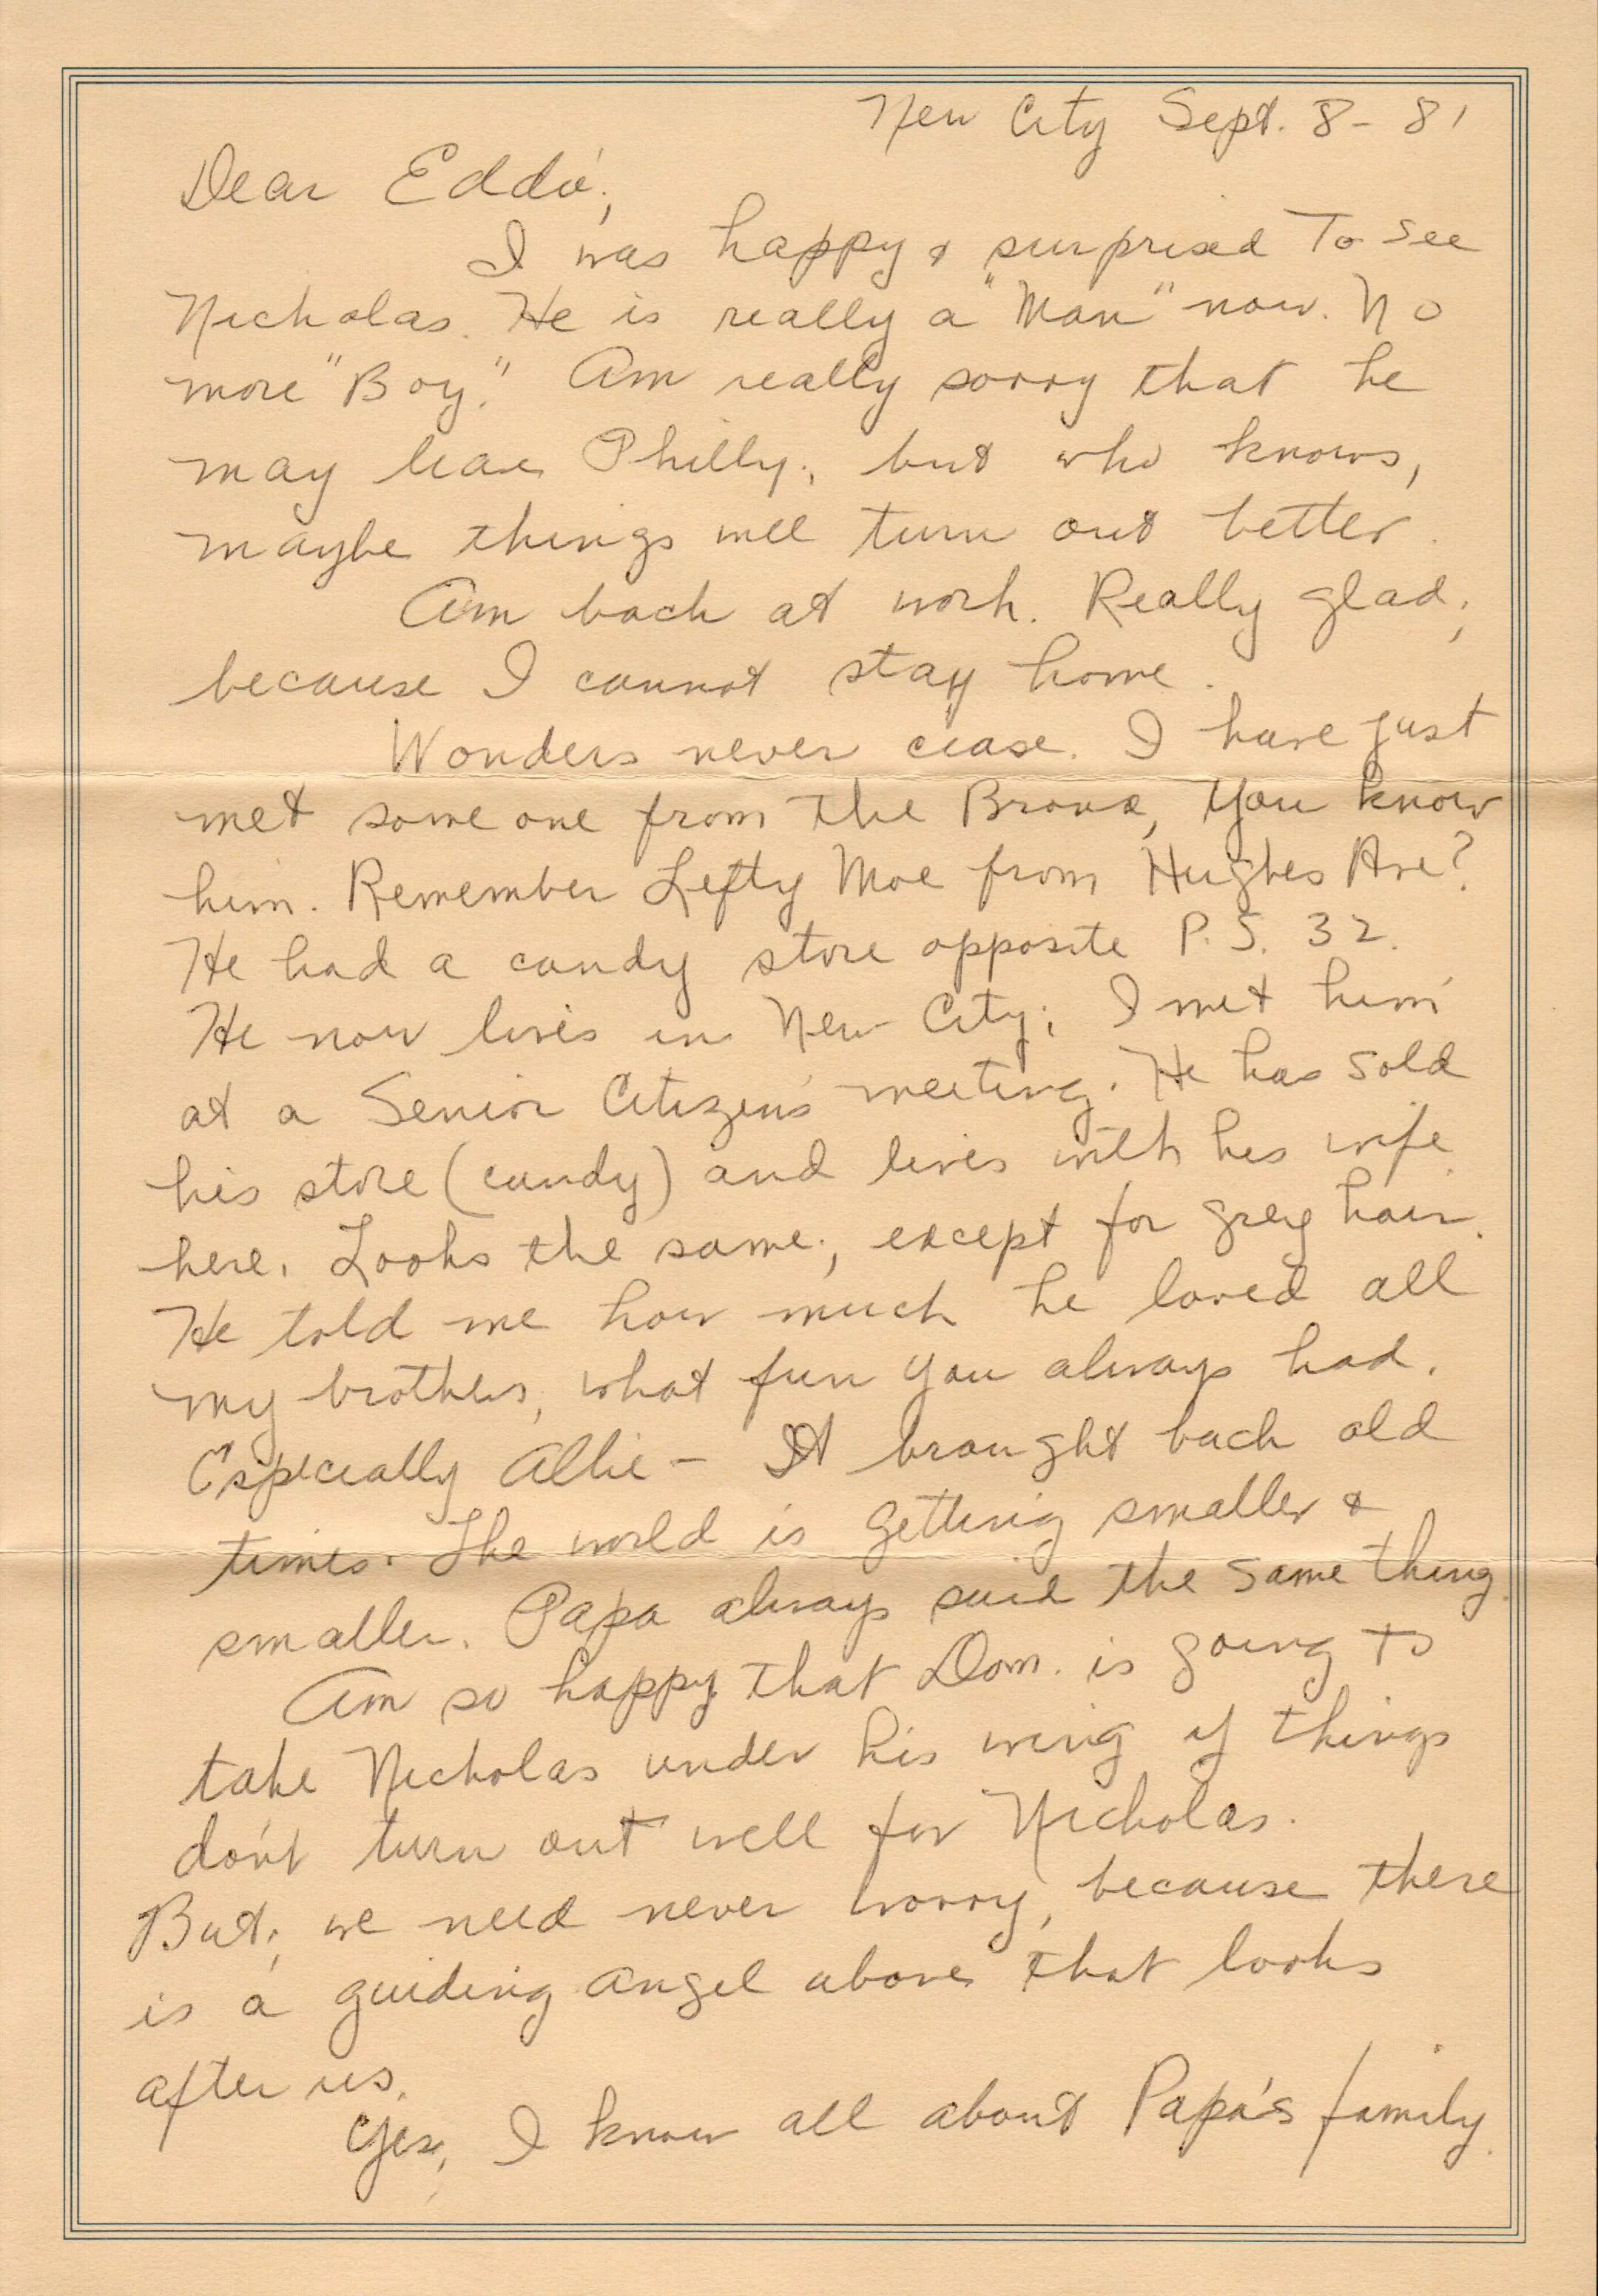 New City Sept. 8 - 81
Dear Eddie,
I was happy & surprised To see
Nicholas. He is really a "Man" now. No
more "Boy." Am really sorry that he
may leave Philly, but who knows,
maybe things will turn out better.
Am back at work. Really glad,
because I cannot stay home.
Wonders never cease. I have just
met some one from the Bronx, you know
him. Remember Lefty Moe from Hughes Ave?
He had a candy store opposite P.S. 32.
He now lives in New City; I met him
at a Senior Citizens meeting. He has sold
his store (candy) and lives with his wife
here. Looks the same, except for grey hair.
He told me how much he loved all
my brothers, what fun you always had.
Especially Allie - It brought back old
times. The world is getting smaller &
smaller. Papa always said the same thing.
Am so happy that Dom. is going to
take Nicholas under his wing if things
don't turn out well for Nicholas.
But, we need never worry, because there
is a guiding angel above that looks
after us.
Yes, I know all about Papa's family.